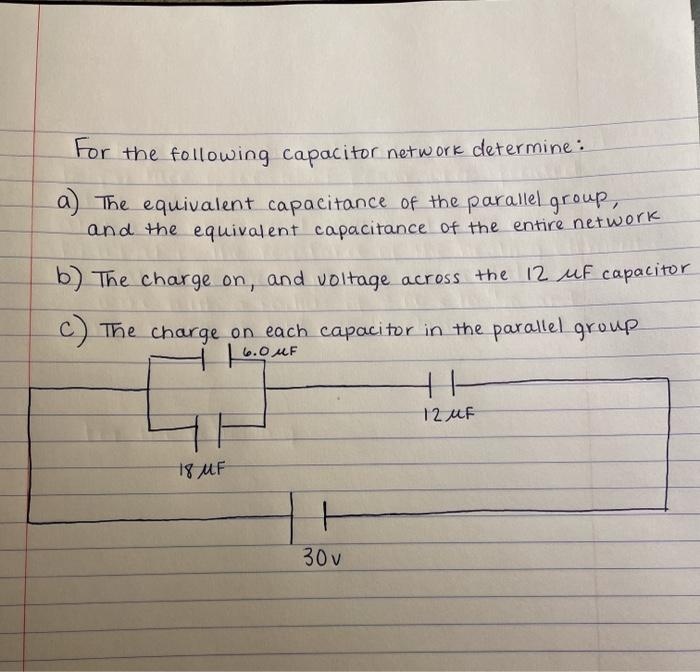 For the following capacitor network determine:
a) The equivalent capacitance of the parallel group,
and the equivalent capacitance of the entire network
b) The charge on, and voltage across the 12 µF capacitor
c) The charge on each capacitor in the parallel group
6.0 µF
12 µF
18 µF
30 v